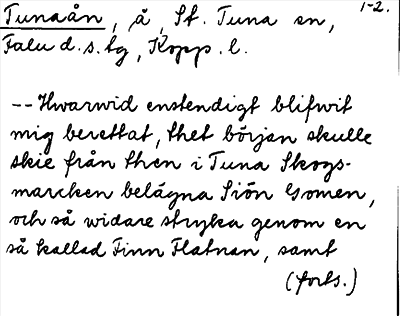 Tunaån, å, St. Tuna sn, 1-2.
Falu d.s. tg, Kopp. l.
-- Hwarwid enstendigt blifwit
mig berettat, thet början skulle
skie från then i Tuna Skogs-
marcken belägna Siön Gomen,
och så widare stryka genom en
så kallad Finn Flatnan, samt
(forts.)